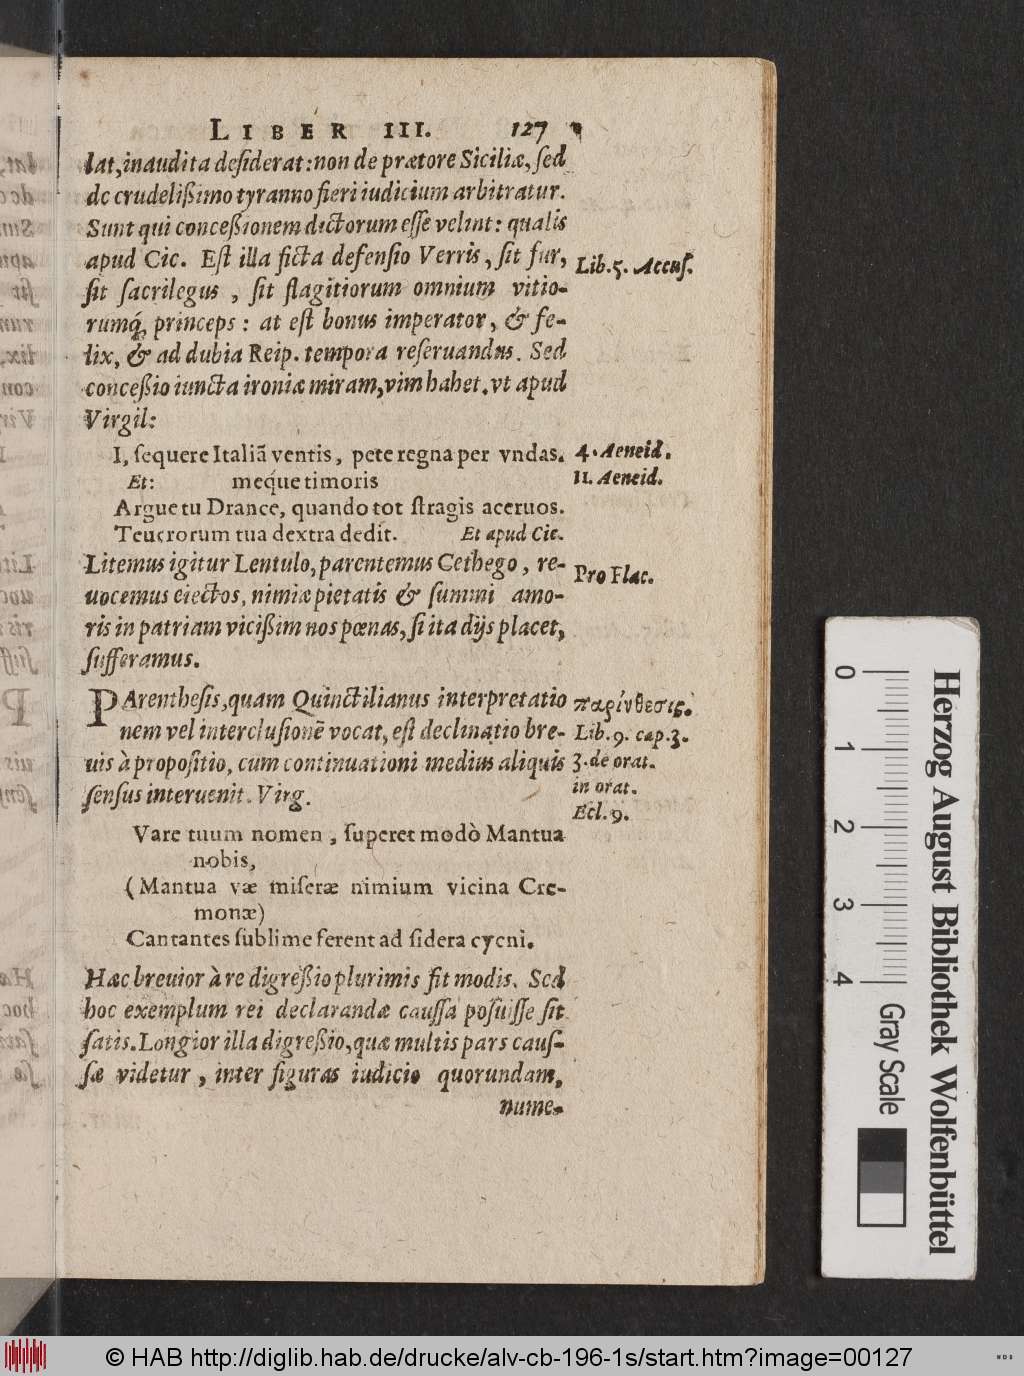 LIBER III. 127
lat, inaudita desiderat: non de prætore Siciliæ, sed
de crudelißimo tyranno fieri iudicium arbitratur.
Sunt qui conceßionem dictorum esse velint: qualis
apud Cic. Est illa ficta defensio Verris, sit fur,
Lib. 5. Accus.
sit sacrilegus, sit flagitiorum omnium vitio-
rumq́; princeps: at est bonus imperator, & fe-
lix, & ad dubia Reip. tempora reseruandus. Sed
conceßio iuncta ironiæ miram, vim habet. vt apud
Virgil:
I, sequere Italiã ventis, pete regna per vndas.
4. Aeneid.
Et: meq́ue timoris
11. Aeneid.
Argue tu Drance, quando tot stragis aceruos.
Teucrorum tua dextra dedit. Et apud Cic.
Litemus igitur Lentulo, parentemus Cethego, re-
Pro Flac.
uocemus eiectos, nimiæ pietatis & summi amo-
ris in patriam vicißim nos pœnas, si ita dijs placet,
sufferamus.
PArenthesis, quam Quinctilianus interpretatio
παρένθεσις.
nem vel interclusionẽ vocat, est declinatio bre-
Lib. 9. cap. 3.
uis à proposìtio, cum continuationi medius aliquis
3. de orat.
sensus interuenit. Virg.
in orat.
Ecl. 9.
Vare tuum nomen, superet modò Mantua
nobis,
(Mantua væ miseræ nimium vicina Cre-
monæ)
Cantantes sublime ferent ad sidera cycni.
Hæc breuior à re digreßio plurimis fit modis. Sed
hoc exemplum rei declarandæ caussa posuisse sit
satis. Longior illa digreßio, quæ multis pars caus-
sæ videtur, inter figuras iudicio quorundam,
nume-
Herzog August Bibliothek Wolfenbüttel
0 1 2 3 4 Gray Scale
© HAB http://diglib.hab.de/drucke/alv-cb-196-1s/start.htm?image=00127